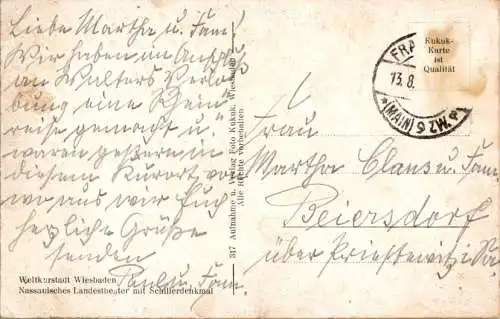 Liebe Martha u. Fam.
Wir haben im Anschluß
an Walters Verlo-
bung eine Rhein
reise gemacht u.
waren gestern in
diesem Kurort von
wo aus wir Euch
herzliche Grüße
senden
Paul u. Fam.
Weltkurstadt Wiesbaden
Nassauisches Landestheater mit Schillerdenkmal
317 Aufnahme u. Verlag Foto Kukuk, Wiesbaden
Alle Rechte vorbehalten
Kukuk-
Karte
ist
Qualität
FRA
13.8.
*(MAIN) 9
Frau
Martha Claus u. Fam.
Beiersdorf
über Priestewitz i/Sa